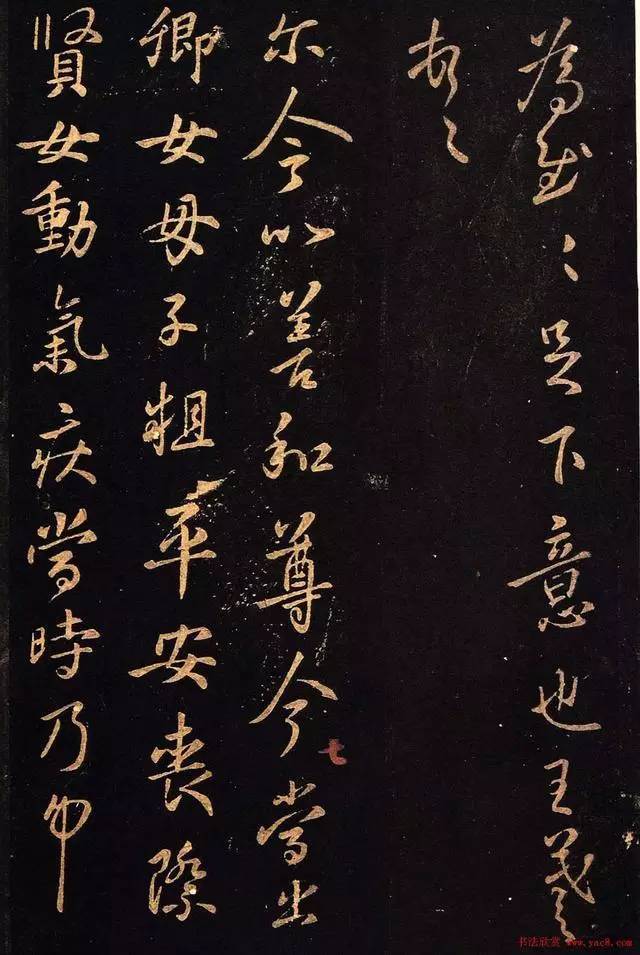 為足下意也王羲之
尔今以善和尊今當出
卿女母子粗平安喪際
賢女動氣疾當時乃
七
书法欣赏 www.yac8.com